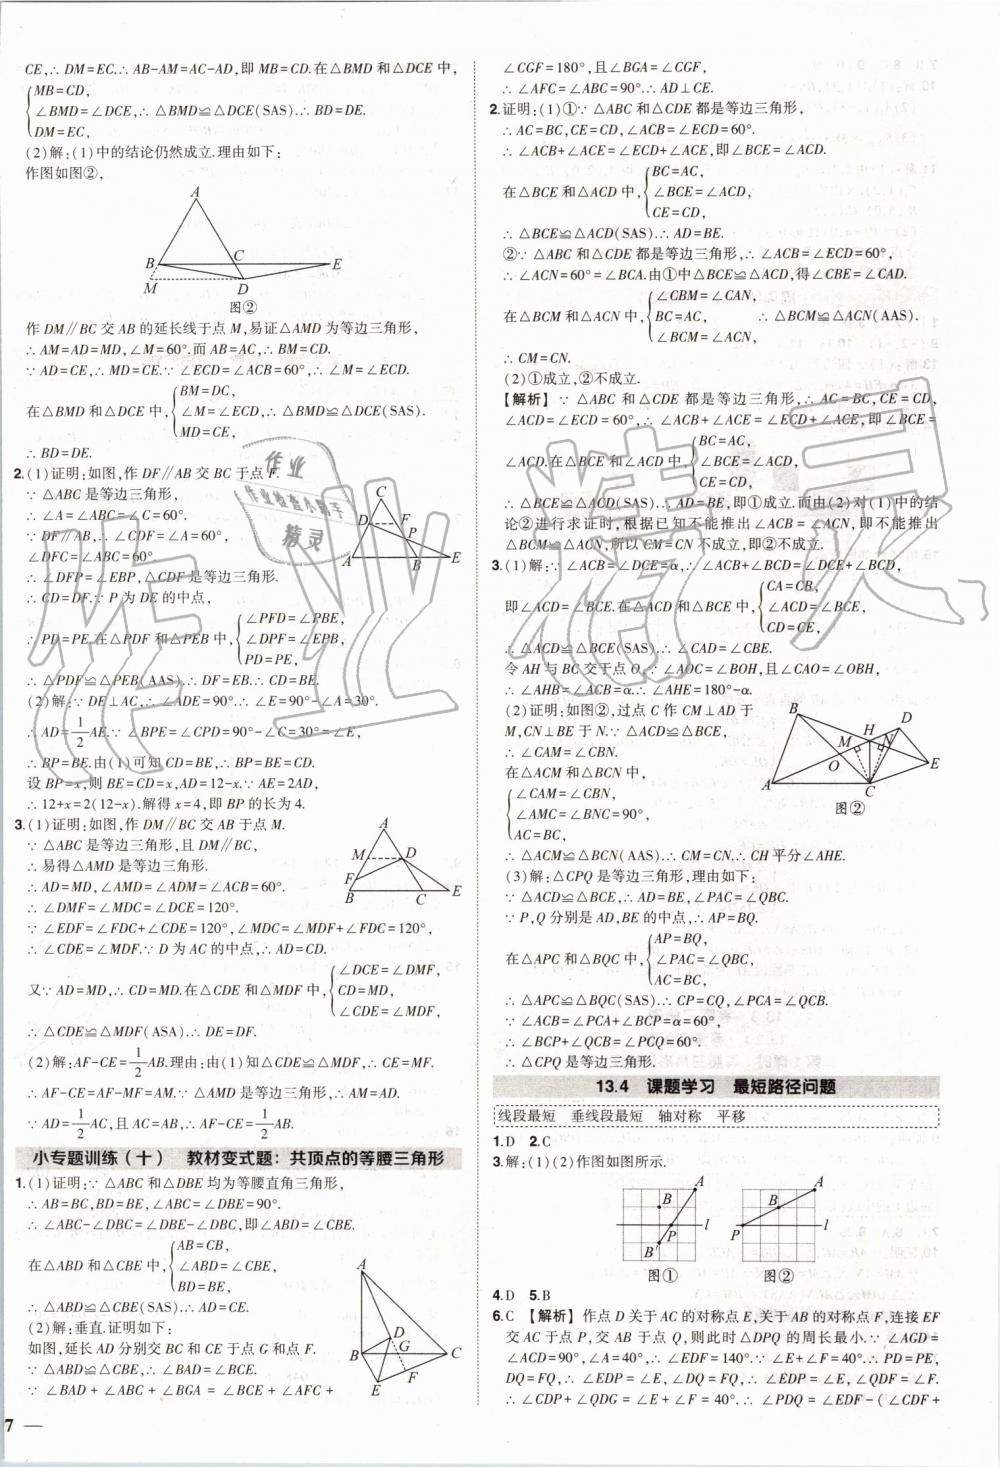 CE,∴DM=EC.∴AB-AM=AC-AD,即MB=CD.在△BMD和△DCE中,
MB=CD,
∠BMD=∠DCE,∴△BMD≌△DCE(SAS).∴BD=DE.
DM=EC,
(2)解:(1)中的结论仍然成立.理由如下:
作图如图②,
A
B
C
E
M
D
图②
作DM∥BC交AB的延长线于点M,易证△AMD为等边三角形,
∴AM=AD=MD,∠M=60°.而AB=AC,∴BM=CD.
∵AD=CE,∴MD=CE.∵∠ECD=∠ACB=60°,∴∠M=∠ECD.
在△BMD和△DCE中,
BM=DC,
∠M=∠ECD,∴△BMD≌△DCE(SAS).
MD=CE,
∴BD=DE.
2.(1)证明:如图,作DF∥AB交BC于点F.
∵△ABC是等边三角形,
∴∠A=∠ABC=∠C=60°.
∵DF∥AB,∴∠CDF=∠A=60°,
∠DFC=∠ABC=60°.
∴∠DFP=∠EBP,△CDF是等边三角形.
∴CD=DF.∵P为DE的中点,
∴PD=PE.在△PDF和△PEB中,
∠PFD=∠PBE,
∠DPF=∠EPB,
PD=PE,
∴△PDF≌△PEB(AAS).∴DF=EB.∴CD=BE.
C
D
F
P
A
B
E
(2)解:∵DE⊥AC,∴∠ADE=90°.∴∠E=90°-∠A=30°.
∴AD=1/2AE.∵∠BPE=∠CPD=90°-∠C=30°=∠E,
∴BP=BE.由(1)可知CD=BE,∴BP=BE=CD.
设BP=x,则BE=CD=x,AD=12-x.∵AE=2AD,
∴12+x=2(12-x).解得x=4,即BP的长为4.
3.(1)证明:如图,作DM∥BC交AB于点M.
∵△ABC是等边三角形,且DM∥BC,
∴易得△AMD是等边三角形.
∴AD=MD,∠AMD=∠ADM=∠ACB=60°.
∴∠DMF=∠MDC=∠DCE=120°.
∵∠EDF=∠FDC+∠CDE=120°,∠MDC=∠MDF+∠FDC=120°,
∴∠CDE=∠MDF.∵D为AC的中点,∴AD=CD.
又∵AD=MD,∴CD=MD.在△CDE和△MDF中,
∠DCE=∠DMF,
CD=MD,
∠CDE=∠MDF,
∴△CDE≌△MDF(ASA).∴DE=DF.
A
M
D
F
B
C
E
(2)解:AF-CE=1/2AB.理由:由(1)知△CDE≌△MDF,∴CE=MF.
∴AF-CE=AF-MF=AM.∵△AMD是等边三角形,∴AM=AD.
∵AD=1/2AC,且AC=AB,∴AF-CE=1/2AB.
小专题训练(十) 教材变式题:共顶点的等腰三角形
1.(1)证明:∵△ABC和△DBE均为等腰直角三角形,
∴AB=BC,BD=BE,∠ABC=∠DBE=90°.
∴∠ABC-∠DBC=∠DBE-∠DBC,即∠ABD=∠CBE.
在△ABD和△CBE中,
AB=CB,
∠ABD=∠CBE,
BD=BE,
∴△ABD≌△CBE(SAS).∴AD=CE.
(2)解:垂直.证明如下:
如图,延长AD分别交BC和CE于点G和点F.
∵△ABD≌△CBE,∴∠BAD=∠BCE.
∵∠BAD+∠ABC+∠BGA=∠BCE+∠AFC+
A
D
G
B
C
F
E
∠CGF=180°,且∠BGA=∠CGF,
∴∠AFC=∠ABC=90°.∴AD⊥CE.
2.证明:(1)①∵△ABC和△CDE都是等边三角形,
∴AC=BC,CE=CD,∠ACB=∠ECD=60°.
∴∠ACB+∠ACE=∠ECD+∠ACE,即∠BCE=∠ACD.
在△BCE和△ACD中,
BC=AC,
∠BCE=∠ACD,
CE=CD,
∴△BCE≌△ACD(SAS).∴AD=BE.
②∵△ABC和△CDE都是等边三角形,∴∠ACB=∠ECD=60°.
∴∠ACN=60°=∠BCA.由①中△BCE≌△ACD,得∠CBE=∠CAD.
在△BCM和△ACN中,
∠CBM=∠CAN,
BC=AC,
∠BCM=∠ACN,
∴△BCM≌△ACN(AAS).
∴CM=CN.
(2)①成立,②不成立.
【解析】∵△ABC和△CDE都是等边三角形,∴AC=BC,CE=CD,
∠ACD=∠ECD=60°,∴∠ACB+∠ACE=∠ECD+∠ACE,即∠BCE=
∠ACD.在△BCE和△ACD中,
BC=AC,
∠BCE=∠ACD,
CE=CD,
∴△BCE≌△ACD(SAS).∴AD=BE,即①成立.而由(2)对(1)中的结
论②进行求证时,根据已知不能推出∠ACB=∠ACE,即不能推出
△BCM≌△ACN,所以CM=CN不成立,即②不成立.
3.(1)解:∵∠ACB=∠DCE=α,∴∠ACB+∠BCD=∠DCE+∠BCD,
即∠ACD=∠BCE.在△ACD和△BCE中,
CA=CB,
∠ACD=∠BCE,
CD=CE,
∴△ACD≌△BCE(SAS).∴∠CAD=∠CBE.
令AH与BC交于点O.∵∠AOC=∠BOH,且∠CAO=∠OBH,
∴∠AHB=∠ACB=α.∴∠AHE=180°-α.
(2)证明:如图②,过点C作CM⊥AD于
M,CN⊥BE于N.∵△ACD≌△BCE,
∴∠CAM=∠CBN.
在△ACM和△BCN中,
∠CAM=∠CBN,
∠AMC=∠BNC=90°,
AC=BC,
B
D
H
M
N
O
E
A
C
图②
∴△ACM≌△BCN(AAS).∴CM=CN.∴CH平分∠AHE.
(3)解:△CPQ是等边三角形,理由如下:
∵△ACD≌△BCE,∴AD=BE,∠PAC=∠QBC.
∵P,Q分别是AD,BE的中点,∴AP=BQ.
在△APC和△BQC中,
AP=BQ,
∠PAC=∠QBC,
AC=BC,
∴△APC≌△BQC(SAS).∴CP=CQ,∠PCA=∠QCB.
∵∠ACB=∠PCA+∠BCP=α=60°,
∴∠BCP+∠QCB=∠PCQ=60°.
∴△CPQ是等边三角形.
13.4 课题学习 最短路径问题
线段最短 垂线段最短 轴对称 平移
1.D 2.C
3.解:(1)(2)作图如图所示.
A
B
l
P
B'
图①
A
B
P
l
图②
4.D 5.B
6.C 【解析】作点D关于AC的对称点E,关于AB的对称点F,连接EF
交AC于点P,交AB于点Q,则此时△DPQ的周长最小.∵∠AGD=
∠ACD=90°,∠A=40°,∴∠EDF=140°.∴∠E+∠F=40°.∵PD=PE,
DQ=FQ,∴∠EDP=∠E,∠DQ=FQ,∴∠EDP=∠E,∠QDF=∠F.
∴∠CDP+∠QDG=∠E+∠F=40°.∴∠PDQ=∠EDF-(∠CDP+
7